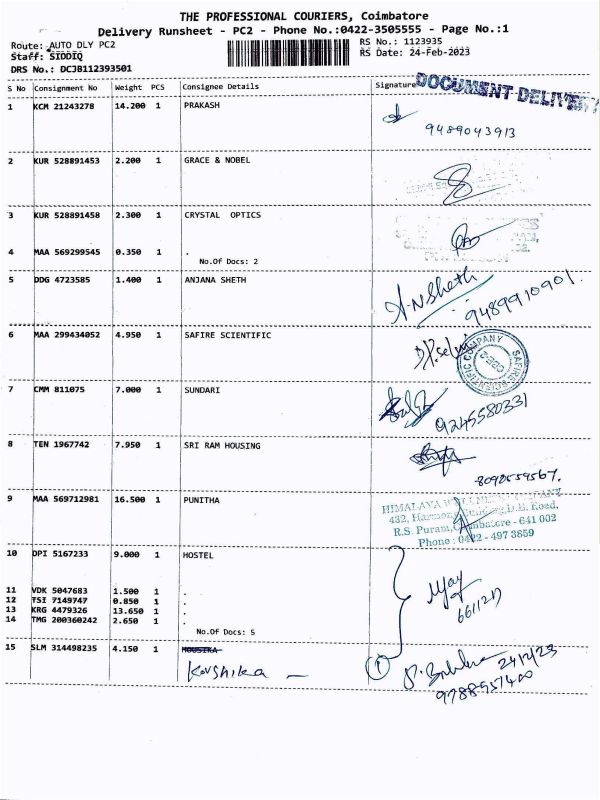 THE PROFESSIONAL COURIERS, Coimbatore
Delivery Runsheet - PC2 - Phone No.:0422-3505555 - Page No.:1
Route: AUTO DLY PC2
RS No.: 1123935
Staff: SIDDIQ
RS Date: 24-Feb-2023
DRS No.: DCJB112393501
S No Consignment No Weight PCS Consignee Details Signature
DOCUMENT DELIVERY
1 KCM 21243278 14.200 1 PRAKASH
9489043913
2 KUR 528891453 2.200 1 GRACE & NOBEL
3 KUR 528891458 2.300 1 CRYSTAL OPTICS
4 MAA 569299545 0.350 1 .
No.Of Docs: 2
5 DDG 4723585 1.400 1 ANJANA SHETH
A.N Sheth
9489910901.
6 MAA 299434052 4.950 1 SAFIRE SCIENTIFIC
SAFIRE SCIENTIFIC COMPANY
7 CMM 811075 7.000 1 SUNDARI
9245580331
8 TEN 1967742 7.950 1 SRI RAM HOUSING
9 MAA 569712981 16.500 1 PUNITHA
HIMALAYA COMPANY
432, Harmony Building, D.B. Road,
R.S. Puram, Coimbatore - 641 002
Phone : 0422 - 497 3859
10 DPI 5167233 9.000 1 HOSTEL
11 VDK 5047683 1.500 1 .
12 TSI 7149747 0.850 1 .
13 KRG 4479326 13.650 1 .
14 TMG 200360242 2.650 1 .
No.Of Docs: 5
15 SLM 314498235 4.150 1 MOUSIKA
Koushika
24/2/23
9788957400